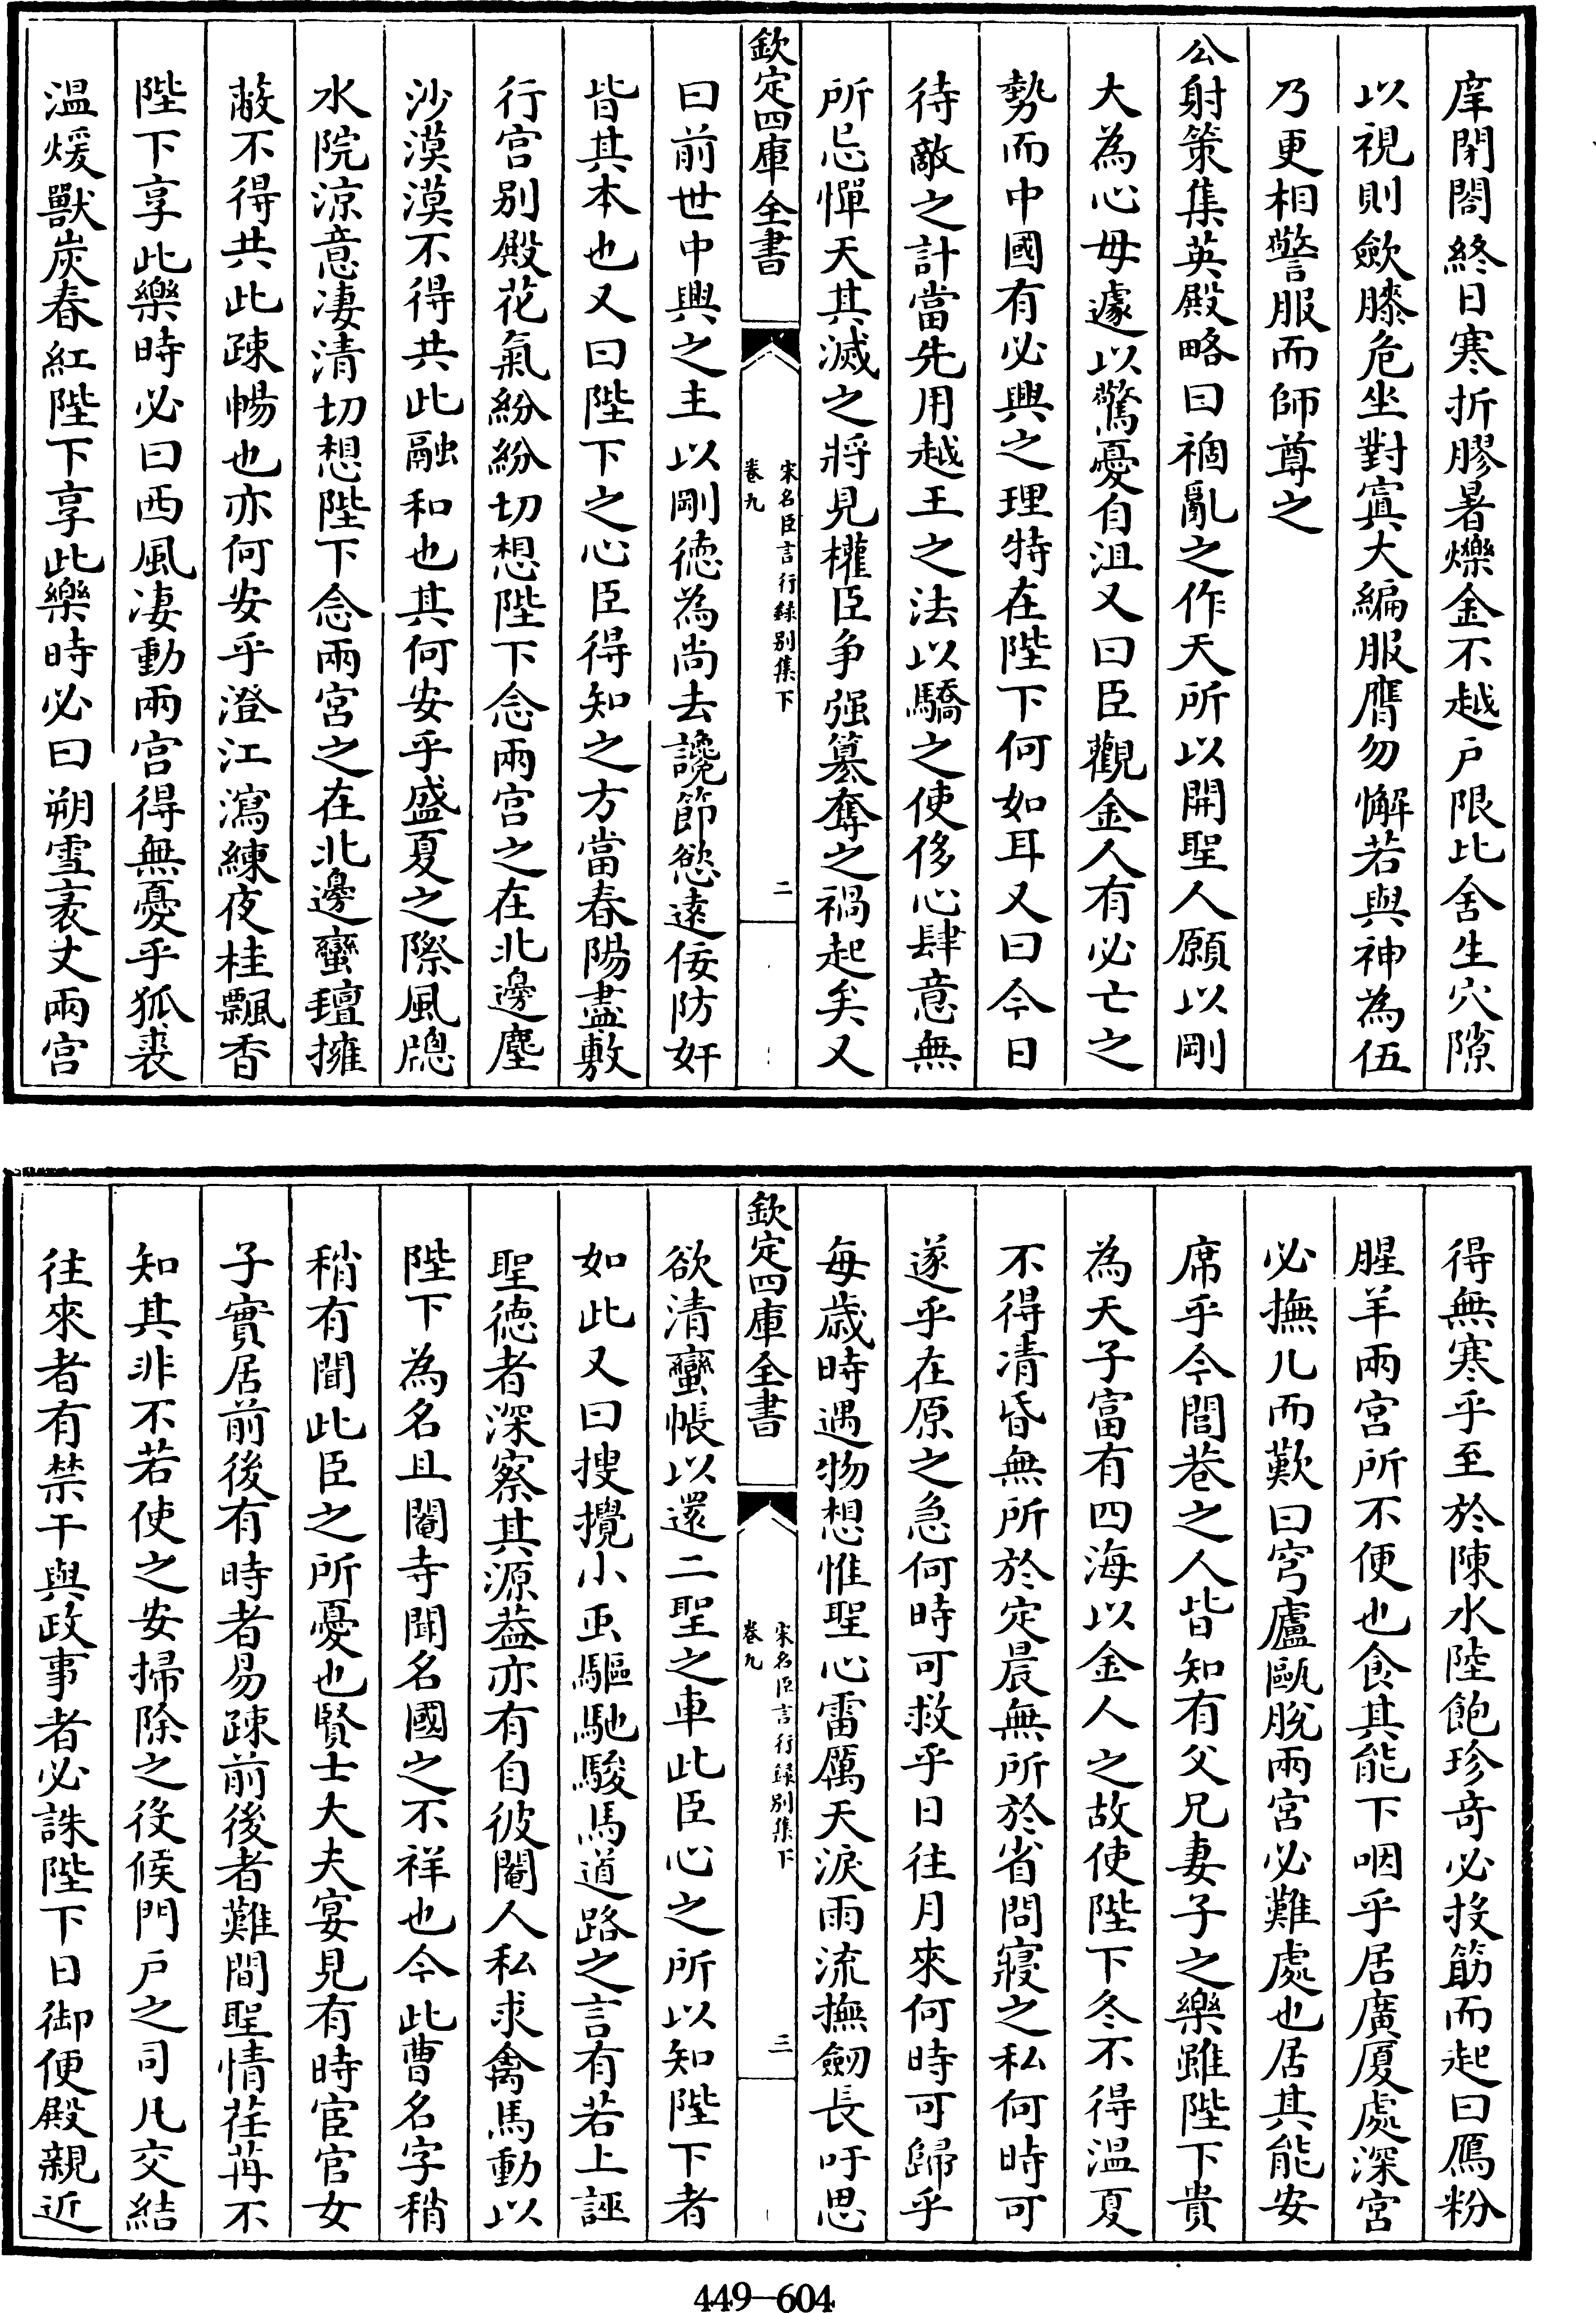 庠閉閤終日寒折膠暑爍金不越戶限比舍生穴隙
以視則歛膝危坐對寘大編服膺勿懈若與神為伍
乃更相警服而師尊之
公射策集英殿略曰禍亂之作天所以開聖人願以剛
大為心毋遽以驚憂自沮又曰臣觀金人有必亡之
勢而中國有必興之理特在陛下何如耳又曰今日
待敵之計當先用越王之法以驕之使侈心肆意無
所忌憚天其滅之將見權臣争强簒奪之禍起矣又
欽定四庫全書
宋名臣言行録别集下
卷九
二
曰前世中興之主以剛徳為尚去讒節慾逺佞防奸
皆其本也又曰陛下之心臣得知之方當春陽盡敷
行宫别殿花氣紛紛切想陛下念兩宫之在北邊塵
沙漠漠不得共此融和也其何安乎盛夏之際風牎
水院涼意凄清切想陛下念兩宮之在北邊蠻氊擁
蔽不得共此疎暢也亦何安乎澄江瀉練夜桂飄香
陛下享此樂時必曰西風凄動兩宫得無憂乎狐裘
温煖獸炭春紅陛下享此樂時必曰朔雪袤丈兩宫
得無寒乎至於陳水陸飽珍奇必投筯而起曰鴈粉
腥羊兩宮所不便也食其能下咽乎居廣厦處深宫
必撫几而歎曰穹廬甌脫兩宮必難處也居其能安
席乎今閭巷之人皆知有父兄妻子之樂雖陛下貴
為天子富有四海以金人之故使陛下冬不得溫夏
不得凊昏無所於定晨無所於省問寢之私何時可
遂乎在原之急何時可救乎日往月來何時可歸乎
每歲時遇物想惟聖心雷厲天淚雨流撫劒長吁思
欽定四庫全書
宋名臣言行録别集下
卷九
三
欲清蠻帳以還二聖之車此臣心之所以知陛下者
如此又曰搜攪小䖝驅馳駿馬道路之言有若上誣
聖徳者深察其源葢亦有自彼閹人私求禽馬動以
陛下為名且閹寺聞名國之不祥也今此曹名字稍
稍有聞此臣之所憂也賢士大夫宴見有時宦官女
子實居前後有時者易疎前後者難間聖情荏苒不
知其非不若使之安掃除之役候門戶之司凡交結
往來者有禁干與政事者必誅陛下日御便殿親近
449—604